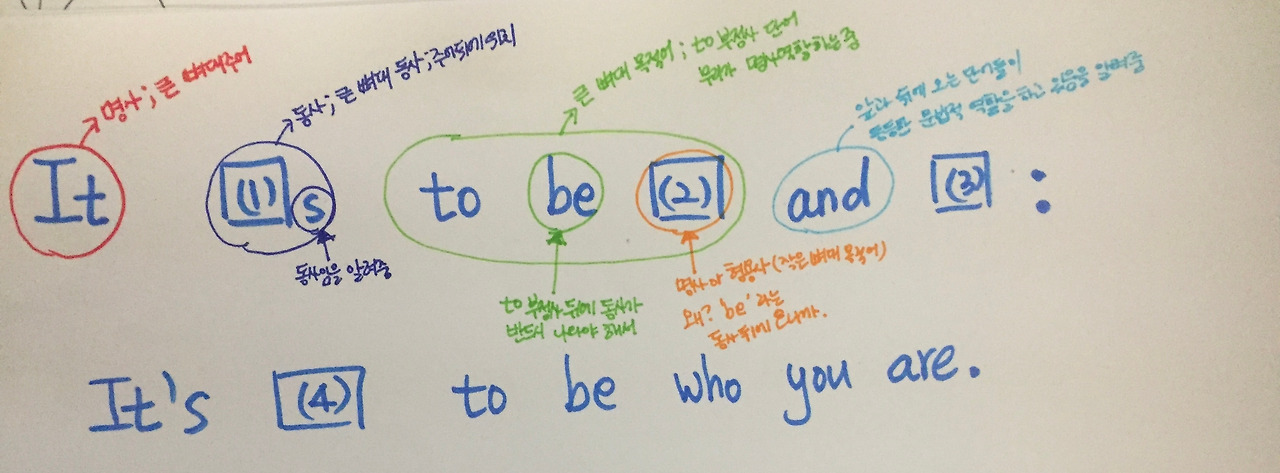 명사; 큰 뼈대주어
동사; 큰 뼈대 동사; 주어뒤에 위치
큰 뼈대 목적어; to 부정사 단어
명사역할하는중
앞과 뒤에 오는 단어들이
문법적 역할을 하고 있음을 알려줌
It (1)s to be (2) and (3) :
동사임을 알려줌
to 부정사 뒤에 동사가
반드시 나와야 해서
명사 or 형용사 (작은 뼈대 목적어)
왜? 'be' 라는
동사 뒤에 오니까.
It's (4) to be who you are.